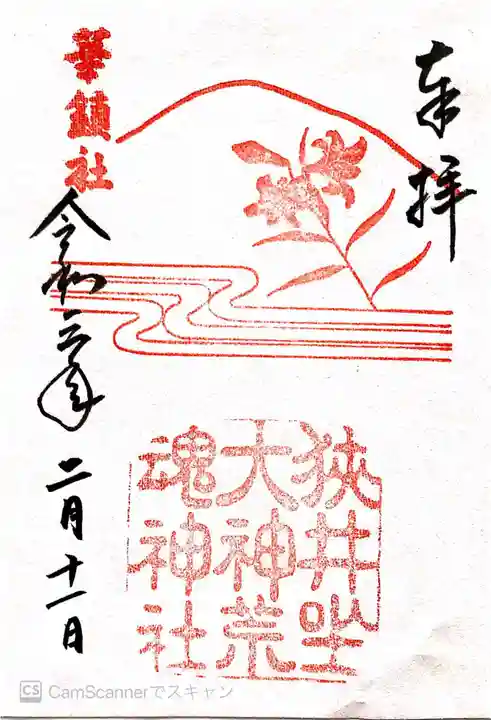 奉拝
狭井坐
大神荒
魂神社
華鎮社
令和六年二月十一日
CS CamScannerでスキャン